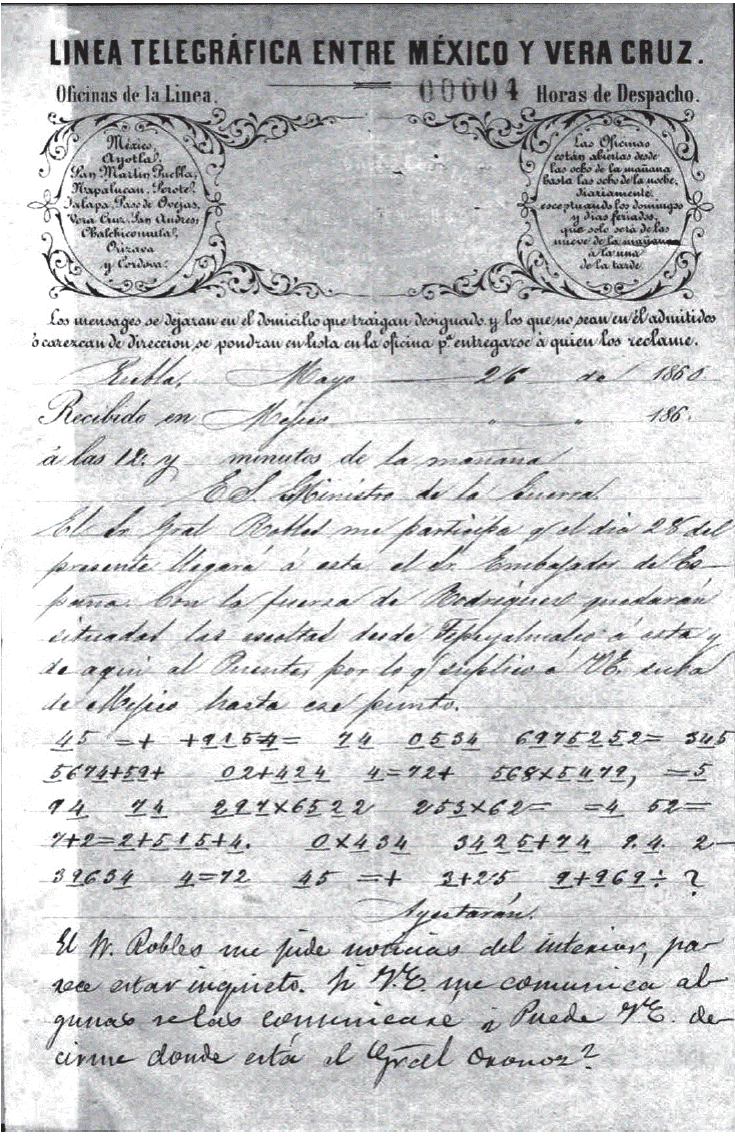 LINEA TELEGRÁFICA ENTRE MÉXICO Y VERA CRUZ.
Oficinas de la Linea. 00004 Horas de Despacho.
México,
Ayotla,
San Martin Puebla,
Napalucan, Perote,
Jalapa, Paso de Ovejas,
Vera Cruz, San Andres,
Chalchicomula,
Orizava
y Cordova.
Las Oficinas
están abiertas desde
las ocho de la mañana
hasta las ocho de la noche,
diariamente,
esceptuando los domingos
y dias feriados,
que solo será de las
nueve de la mañana
á la una
de la tarde.
Los mensages se dejaran en el domicilio que traigan designado, y los que no sean en él admitidos
ó carezcan de direccion, se pondran en lista en la oficina pª entregarse á quien los reclame.
Puebla, Mayo 26 de 1860.
Recibido en Mejico " " 186 .
á las 12. y minutos de la mañana
E. S. Ministro de la Guerra.
El Sr. Gral Robles me participa q el dia 28 del
presente llegará á esta el Sr. Embajador de Es-
paña. Con la fuerza de Rodriguez quedarán
situadas las escoltas desde á esta y
de aqui al Puente, por lo q suplico á V.E. suba
de Mejico hasta ese punto.
45 =+ +9154= 74 0534 6975252= 345
5674+59+ 02+424 4=72+ 568×5479, =5
94 74 297×6522 253×62= =4 52=
7+2=2+515+4. 0×434 3425+74 9.4. 2—
39634 4=72 45 =+ 3+25 9+969÷ ?
Ayestarán.
El Sr. Robles me pide noticias del interior, pa-
rece estar inquieto. Si V.E. me comunica al-
gunas se las comunicaré ¿ Puede V.E. de-
cirme donde está el Gral Oronoz?